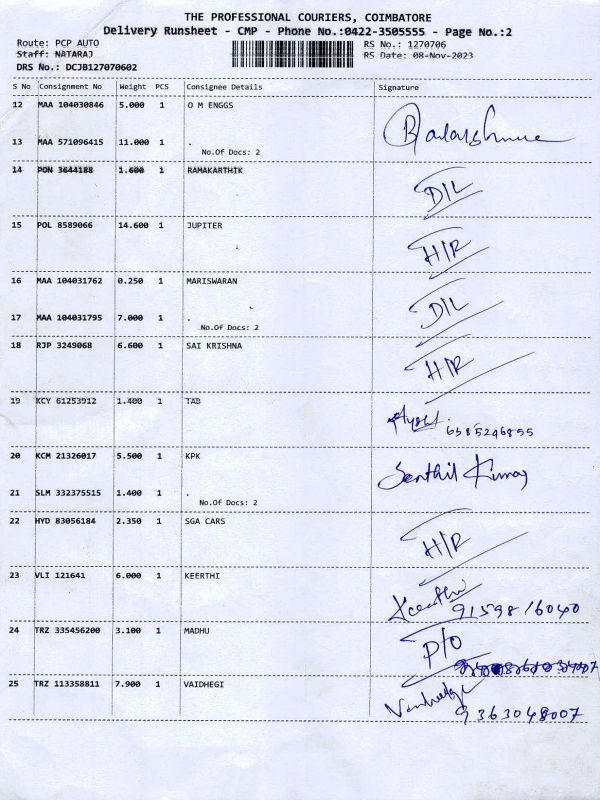 THE PROFESSIONAL COURIERS, COIMBATORE
Delivery Runsheet - CMP - Phone No.:0422-3505555 - Page No.:2
Route: PCP AUTO RS No.: 1270706
Staff: NATARAJ RS Date: 08-Nov-2023
DRS No.: DCJB127070602
S No Consignment No Weight PCS Consignee Details Signature
12 MAA 104030846 5.000 1 O M ENGGS
13 MAA 571096415 11.000 1 .
No.Of Docs: 2
14 PON 3644188 1.600 1 RAMAKARTHIK D/L
15 POL 8589066 14.600 1 JUPITER H/R
16 MAA 104031762 0.250 1 MARISWARAN D/L
17 MAA 104031795 7.000 1 .
No.Of Docs: 2
18 RJP 3249068 6.600 1 SAI KRISHNA H/R
19 KCY 61253912 1.400 1 TAB
6385246855
20 KCM 21326017 5.500 1 KPK Senthil Kumar
21 SLM 332375515 1.400 1 .
No.Of Docs: 2
22 HYD 83056184 2.350 1 SGA CARS H/R
23 VLI 121641 6.000 1 KEERTHI Keerthi
9159816040
24 TRZ 335456200 3.100 1 MADHU P/O
25 TRZ 113358811 7.900 1 VAIDHEGI
9363048007